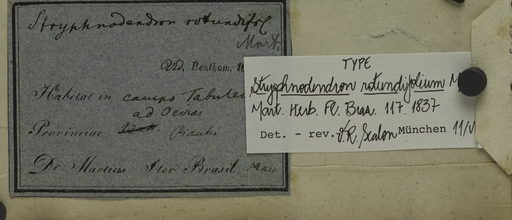 Stryphnodendron rotundifol
Mart.
Vid. Bentham.
Habitat in campis Tabulei
ad Oeiras
Provinciae Piauhi
Dr Martius Iter Brasil. Mai
TYPE
Stryphnodendron rotundifolium M
Mart. Herb. Fl. Bras. 117. 1837
Det. - rev. V.R. Scalon München 11/V